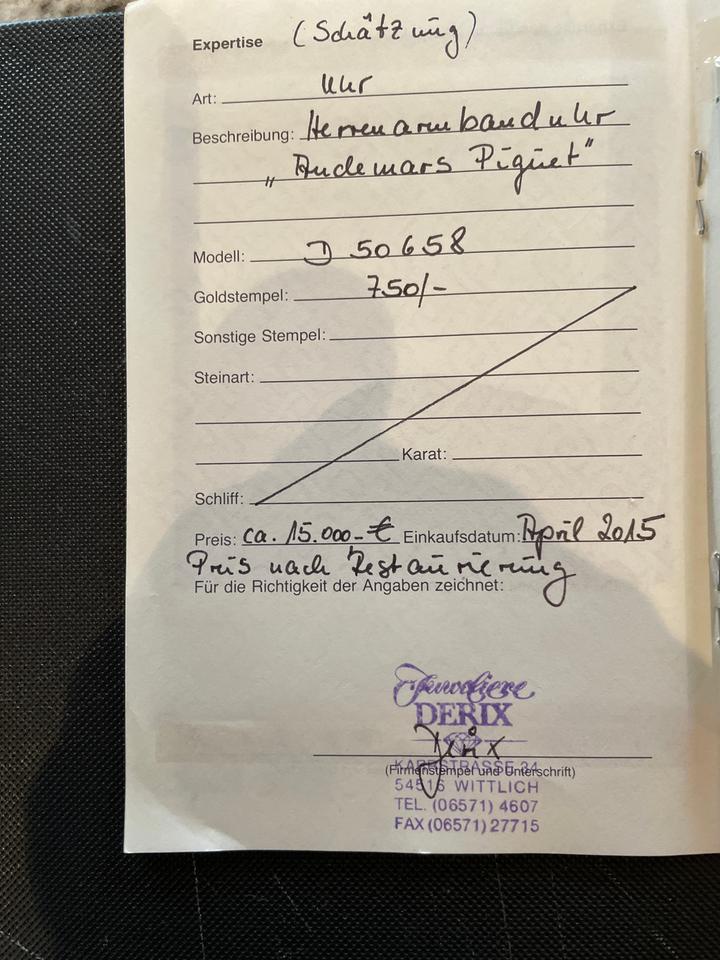 Expertise (Schätzung)
Art: Uhr
Beschreibung: Herrenarmbanduhr
„Audemars Piguet"
Modell: D 50658
Goldstempel: 750/-
Sonstige Stempel:
Steinart:
Karat:
Schliff:
Preis: ca. 15.000,- € Einkaufsdatum: April 2015
Preis nach Restaurierung
Für die Richtigkeit der Angaben zeichnet:
Juweliere
DERIX
Derix
KARRSTRASSE 34
(Firmenstempel und Unterschrift)
54516 WITTLICH
TEL. (06571) 4607
FAX (06571) 27715